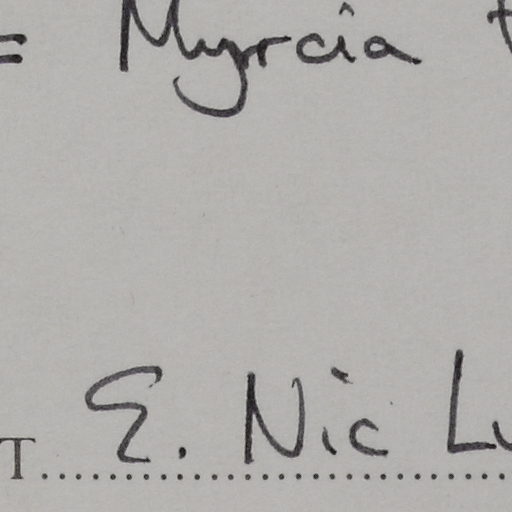 = Myrcia
T E. Nic Lu